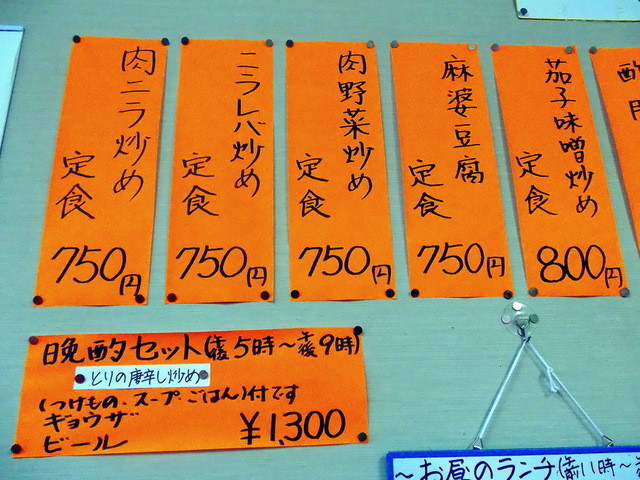 肉ニラ炒め
定食
750円
ニラレバ炒め
定食
750円
肉野菜炒め
定食
750円
麻婆豆腐
定食
750円
茄子味噌炒め
定食
800円
酢
晩酌セット(午後5時〜午後9時)
とりの唐辛し炒め
(つけもの、スープ、ごはん)付です
ギョウザ
ビール
¥1,300
〜お昼のランチ(午前11時〜